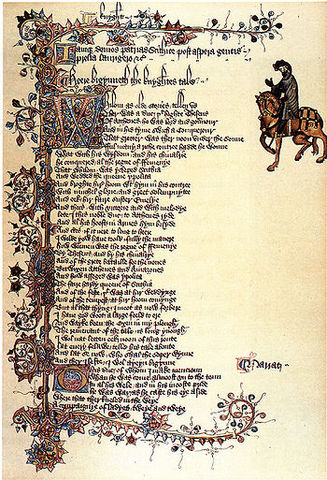 Iamq domos patrias Scithice post aspera gentis
prelia laurigero &c
Heere bigynneth the knyghtes tale
Whilom as olde stories tellen vs
Ther was a duc þt highte Theseus
Of Atthenes he was lord and gouernour
And in his tyme swich a Conquerour
That gretter was ther noon vnder the sonne
Ful many a riche contree hadde he wonne
What with his wysdom and his chiualrie
He conquered al the regne of ffemenye
That whilom was ycleped Scithia
And wedded the queene ypolita
And broghte hir hoom with hym in his contree
With muchel glorie and greet solempnytee
And eek hir faire suster Emelye
And thus with victorie and with melodye
Lete I this noble duc to Atthenes ryde
And al his hoost in armes hym bisyde
And certes if it nere to long to heere
I wolde yow haue toold fully the manere
How wonnen was the regne of ffemenye
By Theseus and by his chiualrye
And of the grete bataille for the nones
Bitwixen Atthenes and Amazones
And how asseged was ypolita
The faire hardy queene of Scithia
And of the feste þt was at hir weddynge
And of the tempest at hir hoom comynge
But al that thyng I moot as now forbere
I haue god woot a large feeld to ere
And wayke been the oxen in my plough
The remenant of the tale is long ynough
I wol nat letten eek noon of this route
Lat euery felawe telle his tale aboute
And lat se now who shal the soper wynne
And ther I lefte I wol ayeyn bigynne
This duc of whom I make mencioun
Whan he was come almoost vn to the toun
In al his wele and in his mooste pride
He was war as he caste his eye aside
Where that ther kneled in the weye
A compaignye of ladyes tweye and tweye